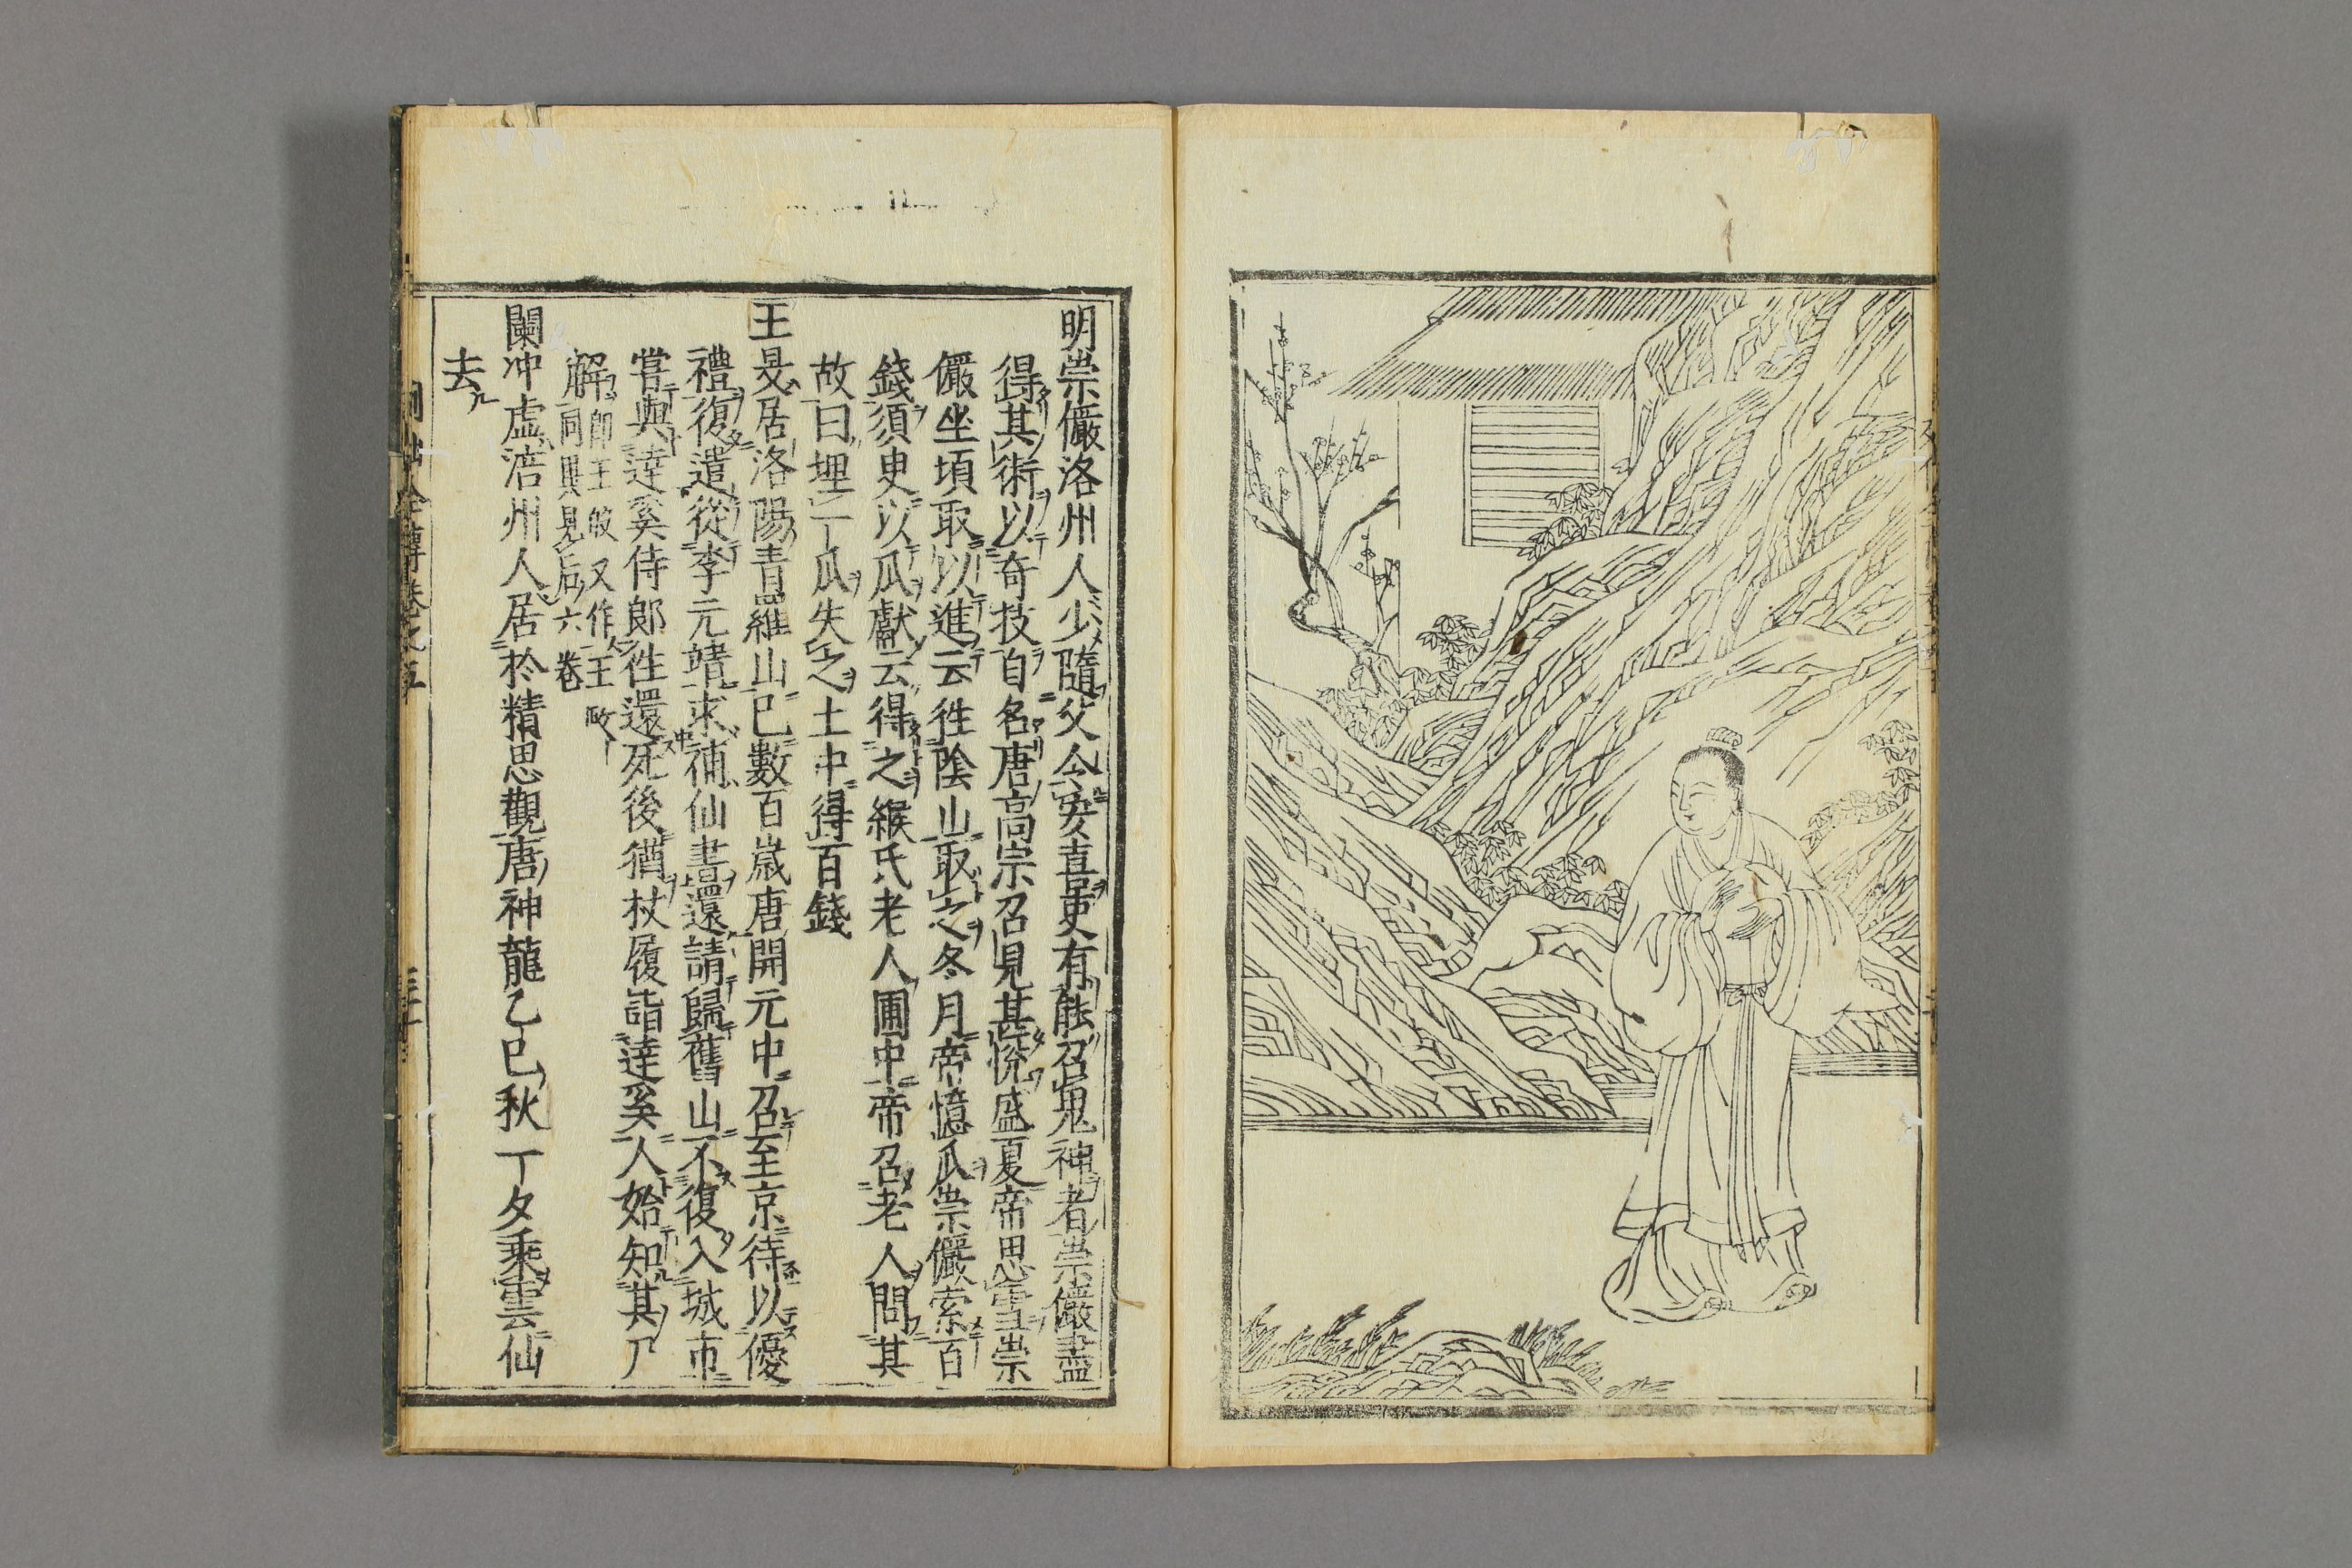 明崇儼洛州人少隨父令安喜吏有能召鬼神者崇儼盡
得其術以奇技自名唐高宗召見甚悅盛夏帝思雪崇
儼坐頃取以進云徃陰山取之冬月帝憶瓜崇儼索百
錢須臾以瓜獻云得之緱氏老人圃中帝召老人問其
故曰埋一瓜失之土中得百錢
王旻居洛陽青羅山已數百歲唐開元中召至京待以優
禮復遣從李元靖求補仙書還請歸舊山不復入城市
嘗與達奚侍郎徃還死後猶杖履詣達奚人始知其尸
解即王皎又作王畋
同異見后六卷
闌冲虛涪州人居於精思觀唐神龍乙巳秋一夕乘雲仙
去
仙全傳卷之五